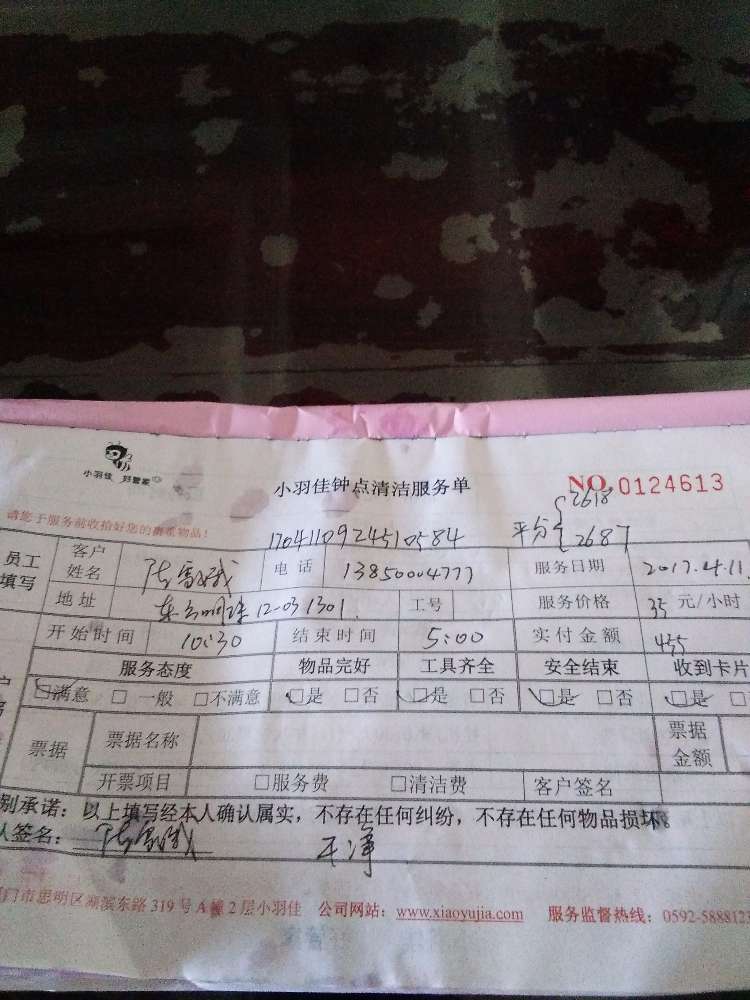 小羽佳 好管家
小羽佳钟点清洁服务单 NO. 0124613
请您于服务前收拾好您的贵重物品!
1704110924510584 平分 2618 2687
员工填写 客户姓名 电话 13850004777 服务日期 2017.4.11
地址 12-03 1301 工号 服务价格 35 元/小时
开始时间 10:30 结束时间 5:00 实付金额 455
服务态度 物品完好 工具齐全 安全结束 收到卡片
☑满意 □一般 □不满意 ☑是 □否 ☑是 □否 ☑是 □否 ☑是 □
票据 票据名称 票据金额
开票项目 □服务费 □清洁费 客户签名
别承诺:以上填写经本人确认属实,不存在任何纠纷,不存在任何物品损坏。
人签名: 干净
门市思明区湖滨东路 319 号 A 幢 2 层小羽佳 公司网站:www.xiaoyujia.com 服务监督热线:0592-5888123